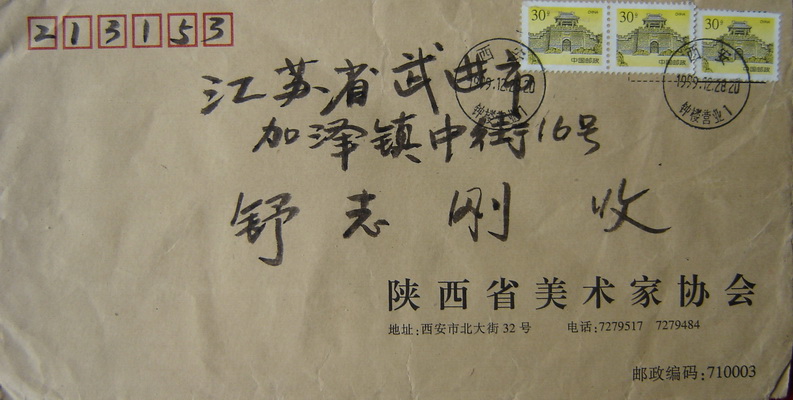 213153
30分
30分
30分
中国邮政
中国邮政
中国邮政
西安
1999.12.28.20
钟楼营业1
西安
1999.12.28.20
钟楼营业1
江苏省武进市
加泽镇中街16号
舒志刚 收
陕西省美术家协会
地址:西安市北大街32号 电话:7279517 7279484
邮政编码:710003